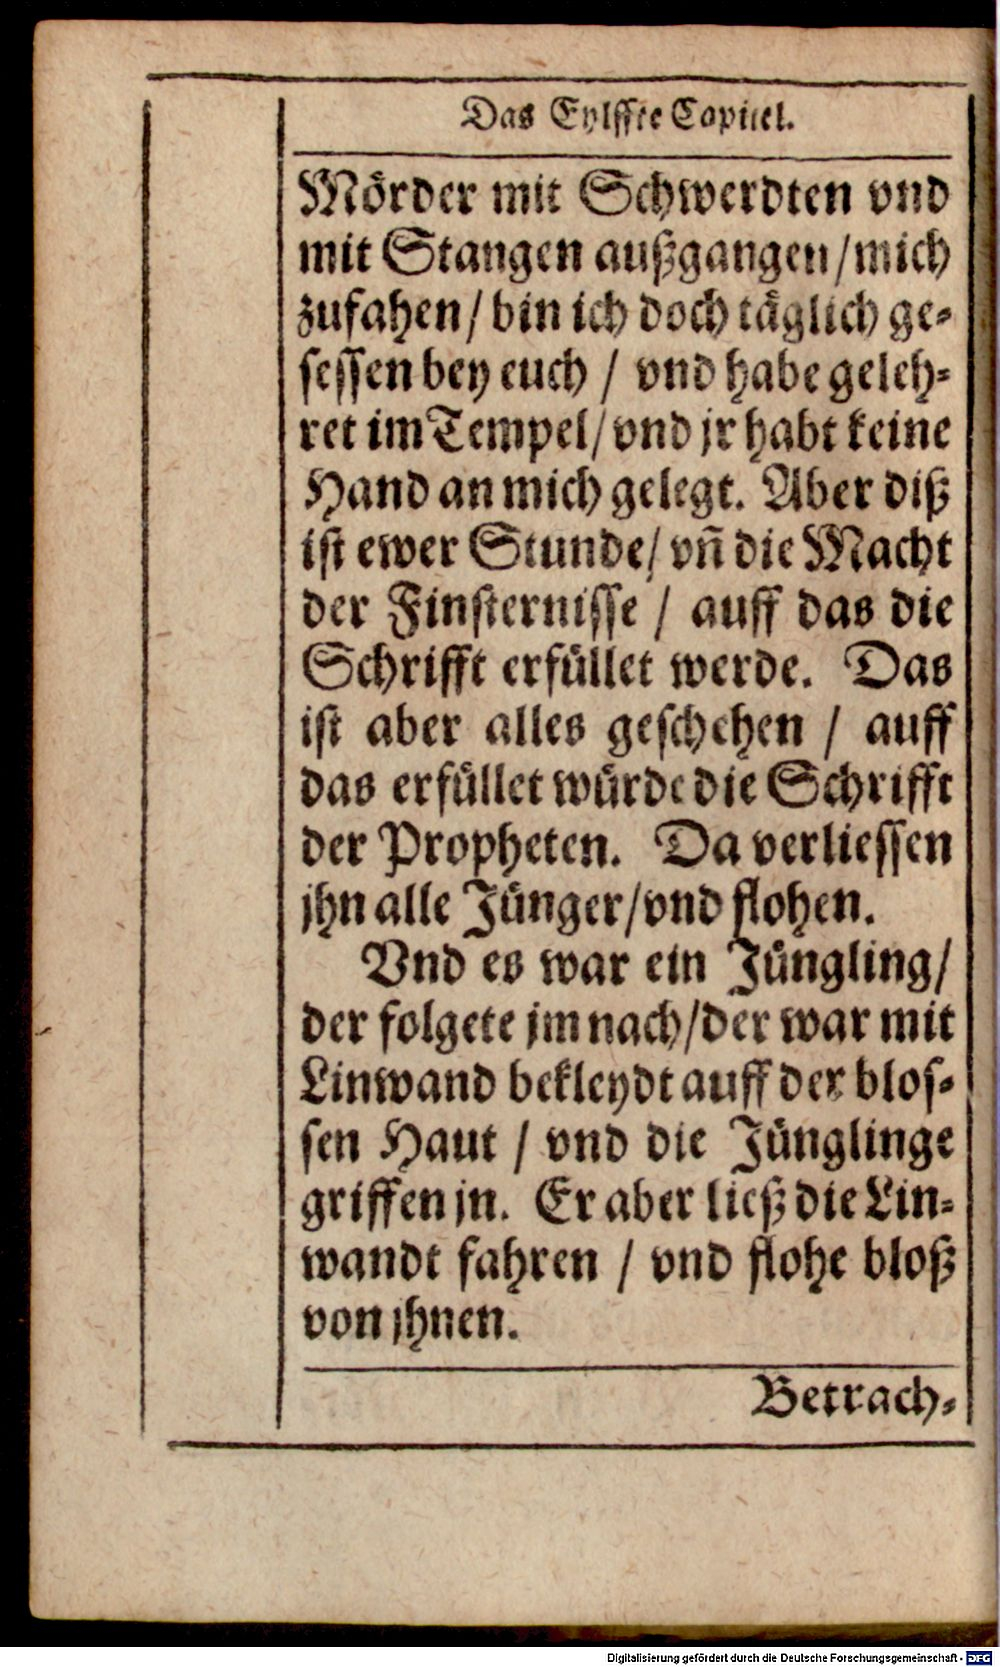 Das Eylffte Capittel.
Mörder mit Schwerdten vnd
mit Stangen außgangen / mich
zufahen / bin ich doch täglich ge-
sessen bey euch / vnd habe geleh-
ret im Tempel / vnd jr habt keine
Hand an mich gelegt. Aber diß
ist ewer Stunde / vñ die Macht
der Finsternisse / auff das die
Schrifft erfüllet werde. Das
ist aber alles geschehen / auff
das erfüllet würde die Schrifft
der Propheten. Da verliessen
jhn alle Jünger / vnd flohen.
Vnd es war ein Jüngling /
der folgete jm nach / der war mit
Linwand bekleydt auff der blos-
sen Haut / vnd die Jünglinge
griffen jn. Er aber ließ die Lin-
wandt fahren / vnd flohe bloß
von jhnen.
Betrach-
Digitalisierung gefördert durch die Deutsche Forschungsgemeinschaft - DFG